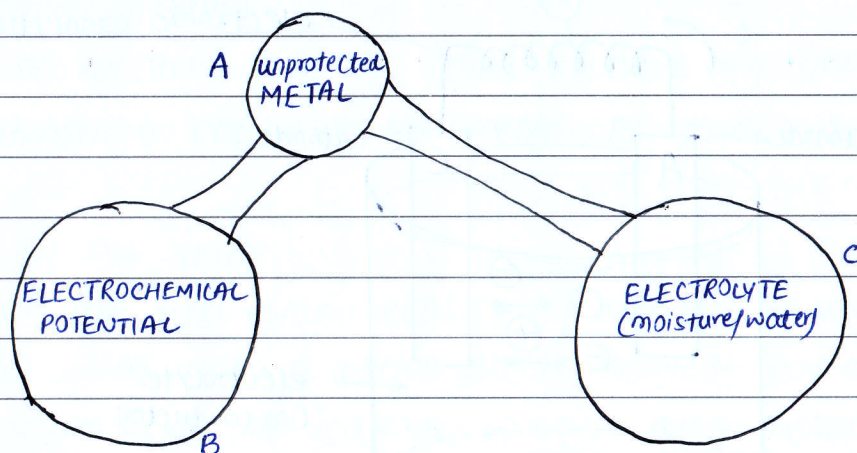 A
unprotected
METAL
ELECTROCHEMICAL
POTENTIAL
B
ELECTROLYTE
(moisture/water)
C